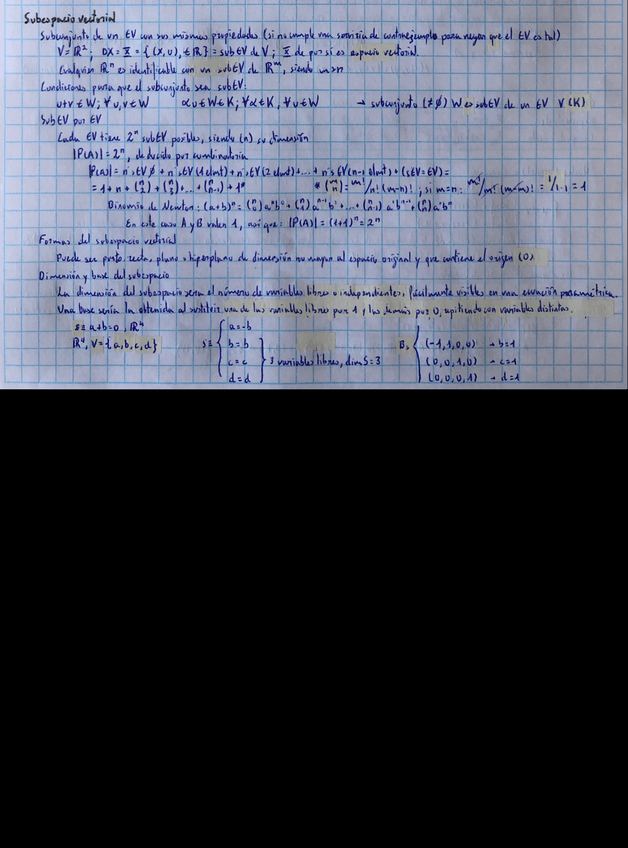 Subespacio vectorial
Subconjunto de un EV con sus mismas propiedades (si no cumple una serviría de contraejemplo para negar que el EV es tal)
V = ℝ²; OX = X = {(x,0), ∈ ℝ} = sub EV de V; X de por sí es espacio vectorial.
Cualquier ℝⁿ es identificable con un subEV de ℝᵐ, siendo m>n
Condiciones para que el subconjunto sea subEV:
u+v ∈ W; ∀ u,v ∈ W αu ∈ W ∈ K; ∀α ∈ K, ∀u ∈ W → subconjunto (≠∅) W es subEV de un EV V(K)
SubEV por EV
Cada EV tiene 2ⁿ subEV posibles, siendo (n) su dimensión
|P(A)| = 2ⁿ, deducido por combinatoria
|P(A)| = nºsEV ∅ + nºsEV (1 elmnt) + nºsEV (2 elmnt) + ... + nºsEV (n-1 elmnt) + (sEV=EV) =
= 1 + n + (ⁿ₂) + (ⁿ₃) + ... + (ⁿₙ₋₁) + 1ⁿ * (ᵐₙ) = m!/n!(m-n)! ; si m=n: m!/m!(m-m)! = 1/1·1 = 1
Binomio de Newton: (a+b)ⁿ = (ⁿ₀) aⁿb⁰ + (ⁿ₁) aⁿ⁻¹b¹ + ... + (ⁿₙ₋₁) a¹bⁿ⁻¹ + (ⁿₙ) a⁰bⁿ
En este caso A y B valen 1, así que: |P(A)| = (1+1)ⁿ = 2ⁿ
Formas del subespacio vectorial
Puede ser punto, recta, plano o hiperplano de dimensión no mayor al espacio original y que contiene el origen (0)
Dimensión y base del subespacio
La dimensión del subespacio sería el número de variables libres o independientes, fácilmente visibles en una ecuación paramétrica.
Una base sería la obtenida al sustituir una de las variables libres por 1 y las demás por 0, repitiendo con variables distintas.
S ≡ a+b=0, ℝ⁴
ℝ⁴, V={a,b,c,d} S ≡ { a=-b
b=b
c=c
d=d } 3 variables libres, dim S=3
B₁ { (-1,1,0,0) → b=1
(0,0,1,0) → c=1
(0,0,0,1) → d=1